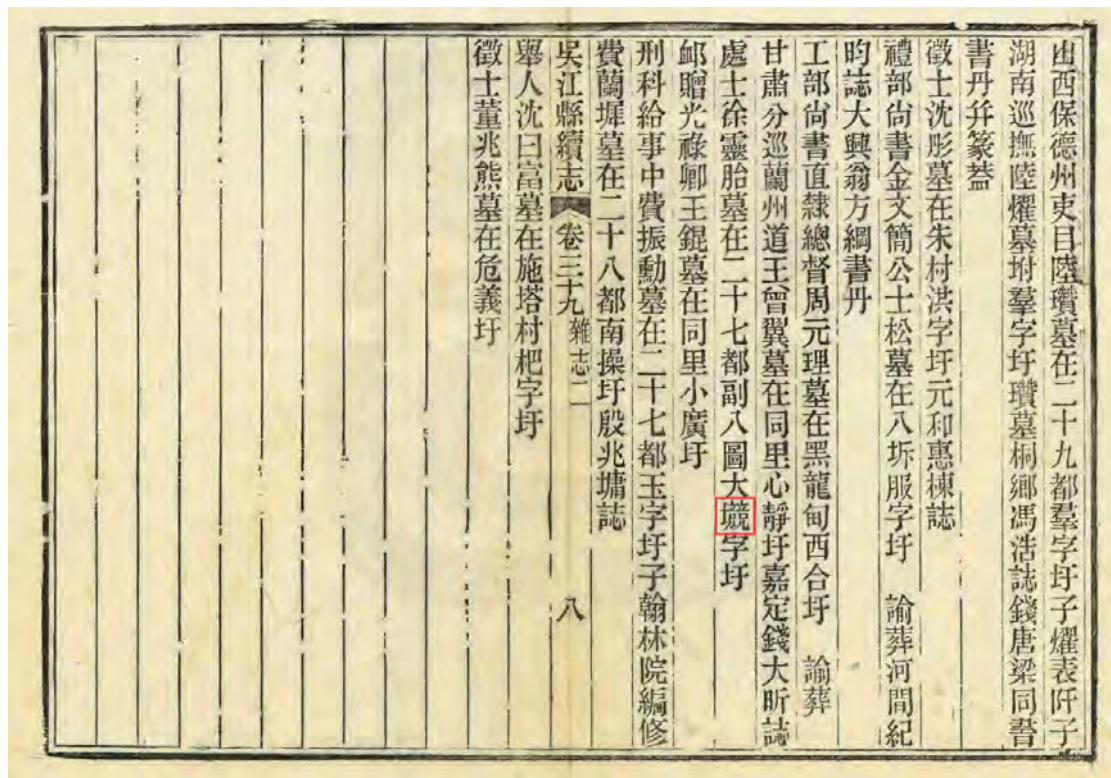 山西保德州吏目陸瓚墓在二十九都羣字圩子燿表阡子
湖南巡撫陸燿墓坿羣字圩瓚墓桐鄉馮浩誌錢唐梁同書
書丹幷篆葢
徵士沈彤墓在朱村洪字圩元和惠棟誌
禮部尙書金文簡公士松墓在八坼服字圩　諭葬河間紀
昀誌大興翁方綱書丹
工部尙書直隸總督周元理墓在黑龍甸西合圩　諭葬
甘肅分巡蘭州道王曾翼墓在同里心靜圩嘉定錢大昕誌
處士徐靈胎墓在二十七都副八圖大字圩
卹贈光祿卿王錕墓在同里小廣圩
刑科給事中費振勳墓在二十七都玉字圩子翰林院編修
費蘭墀墓在二十八都南操圩殷兆墉誌
吳江縣續志　卷三十九　雜志二　八
舉人沈曰富墓在施塔村杷字圩
徵士董兆熊墓在危義圩